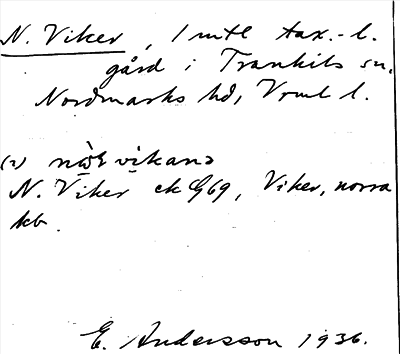 N. Viker, 1 mtl tax.-l.
gård i Trankils sn,
Nordmarks hd, Vrml l.
(2) vikanə
N. Viker ek G69, Viker, norra
kb.
E. Andersson 1936.